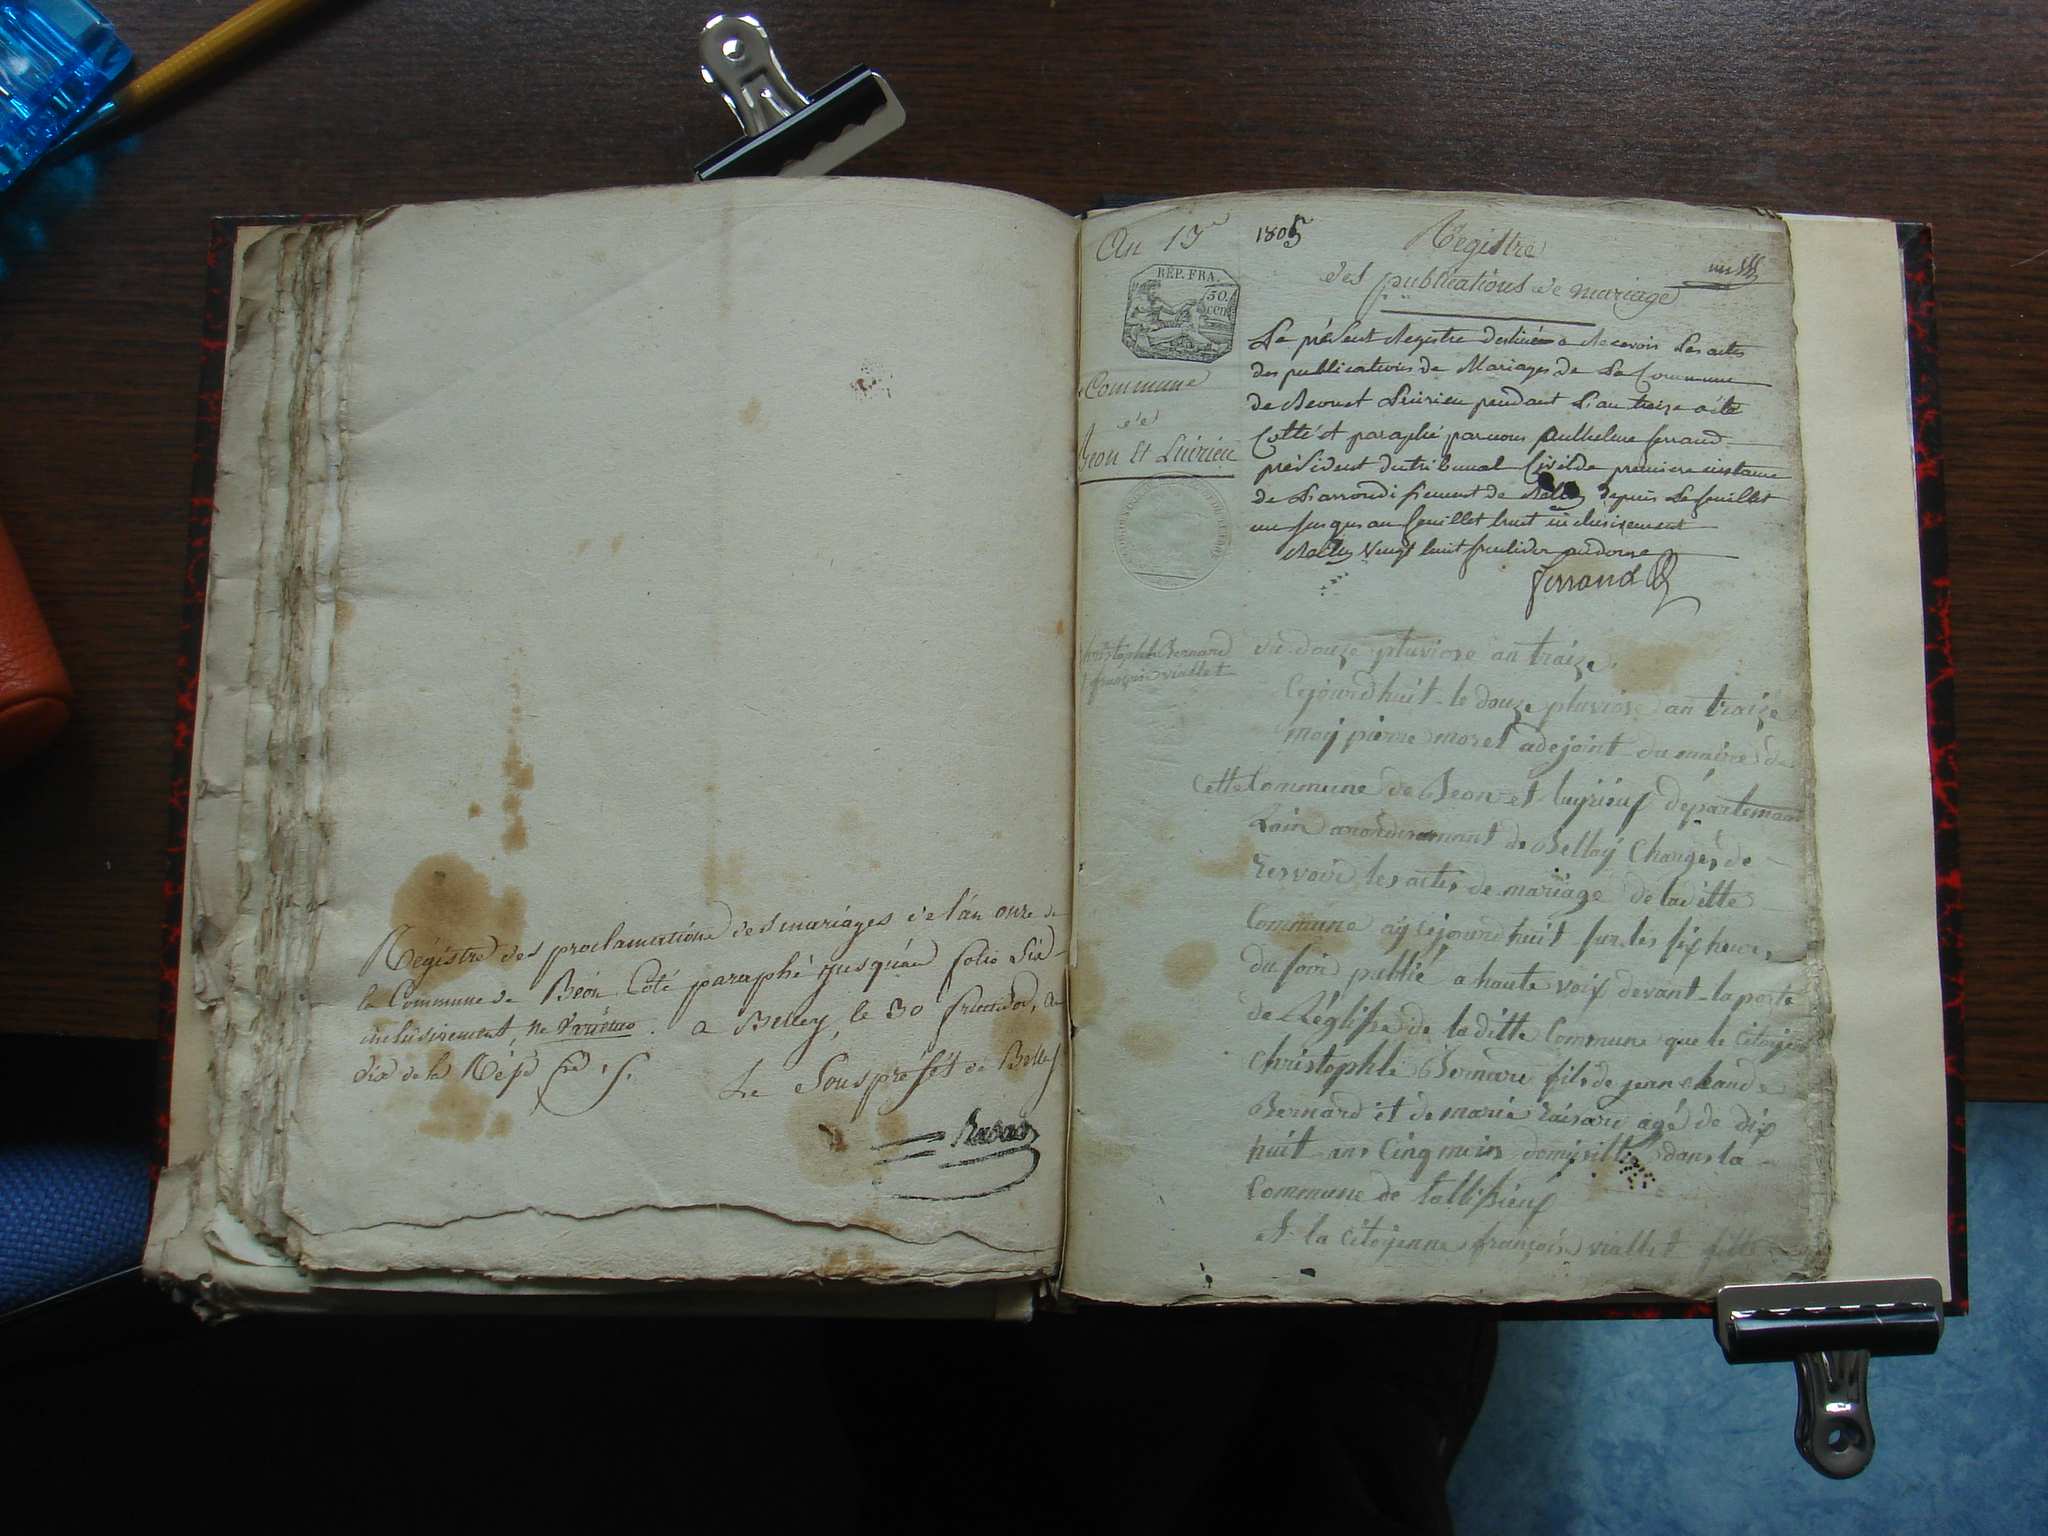 Régistre des proclamations des mariages de l'an onze de
la Commune de Béon Côté paraphé jusqu'au folio Six
inclusivement, a Belley, le 30 fructidor, an
dix de la Rép.
Le Souspréfét de Belley
An 13e 1805
Registre
des publications de mariage
RÉP. FRA.
50.
cen.
Commune
de
Beon Et Luirieu
Le présent Registre destiné a Recevoir Les actes
des publications de Mariages de La Commune
de Beon et Luirieu pendant L'an treize a été
Cotté et paraphé par nous Anthelme ferrand
président du tribunal Civil de premiere instance
de L'arrondissement de Belley depuis Le feuillet
un jusqu'au feuillet huit inclusivement
Belley vingt huit fructidor an douze
ferrand
christophle Bernard
françoise viallet
du douze pluviose an traize.
Cejourdhuit le douze pluviose an traize
moy pierre moret adejoint du maire de
Cette Commune de Beon et luyrieuf départemant
Lain de Belley Charges de
Resevoir les actes de mariage de laditte
Commune ay cejourdhuit sur les six heures
du soir publié a haute voix devant la porte
de L'églisse de la ditte Commune que le Citoyen
Christophle Bernard fils de jean claude
Bernard et de marie agé de dix
huit ans Cinq mois domisillié dans la
Commune de tallissieuf
Et la Citoyenne françoise viallet fille